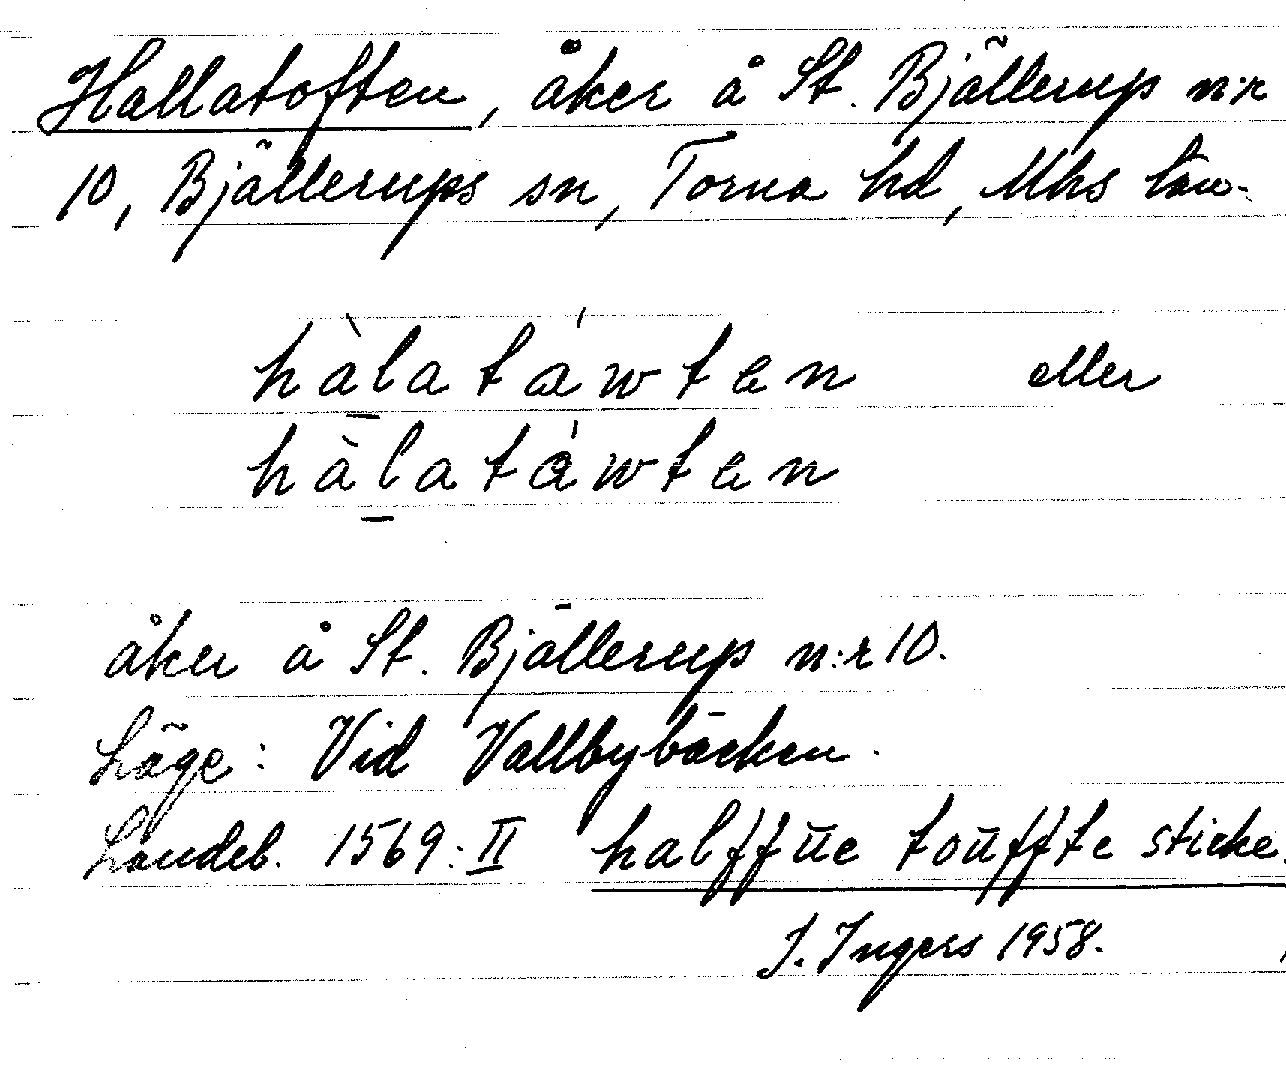 Hallatoften, åker å St. Bjällerup n:r
10, Bjällerups sn, Torna hd, Mhs län.
hàlatáwten eller
hàlatáwten
åker å St. Bjällerup n:r 10.
Läge: Vid Vallbybäcken.
Landeb. 1569:II halffūe toūffte sticke.
I. Ingers 1958.